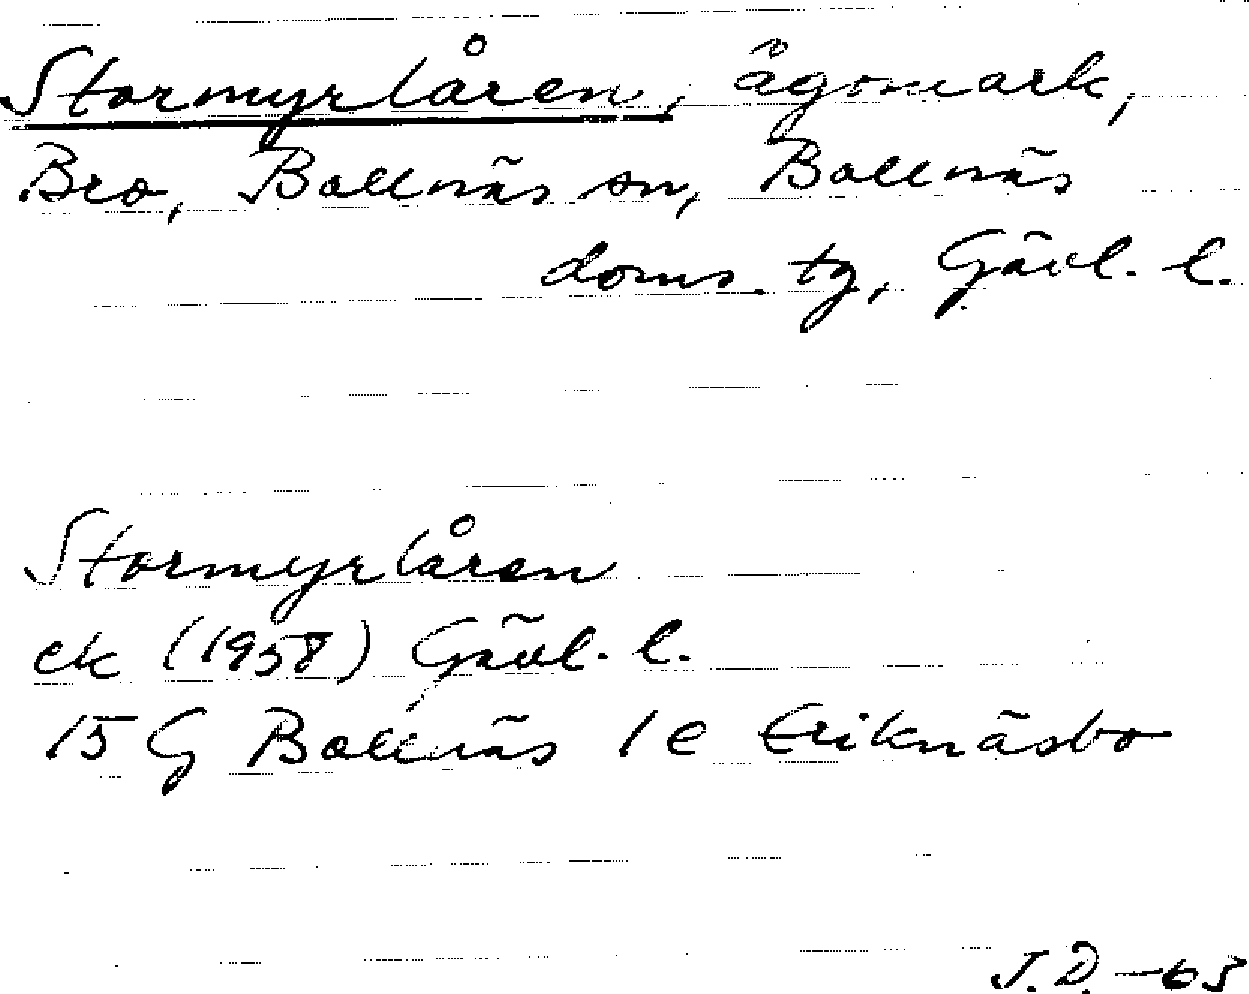 Stormyrlåren, ägomark,
Bro, Bollnäs sn, Bollnäs
doms. tg, Gävl. l.
Stormyrlåren
ek (1958) Gävl. l.
15 G Bollnäs 1 e Eriknäsbo
J.D. -63